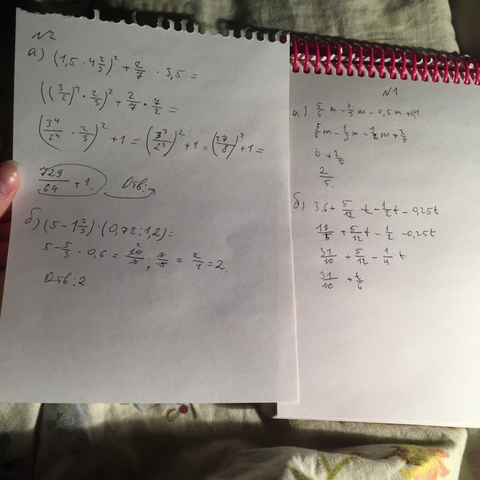 N2
а) (1,5 · 4 2/3)² + 2/7 · 3,5 =
((3/2)⁴ · 2/3)² + 2/7 · 7/2 =
(3⁴/2⁴ · 2/3)² + 1 = (3³/2³)² + 1 = (27/8)² + 1 =
729/64 + 1. Отв:
б) (5 - 1 2/3) · (0,72 : 1,2) =
5 - 5/3 · 0,6 = 10/3 · 3/5 = 2/1 = 2
Отв: 2
N1
а) 5/6 m - 1/3 m - 0,5 m +
5/6 m - 1/3 m - 1/2 m + 2/5
0 + 2/5
2/5
б) 3,6 + 5/12 t - 1/2 t - 0,25t
18/5 + 5/12 t - 1/2 - 0,25t
31/10 + 5/12 - 1/4 t
31/10 + t/6